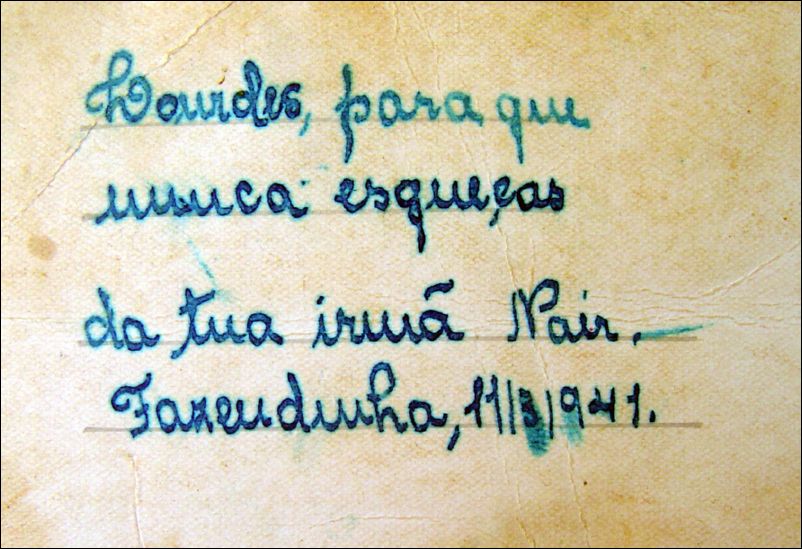 Lourdes, para que
nunca esqueças
da tua irmã Nair.
Fazendinha, 11/3/941.